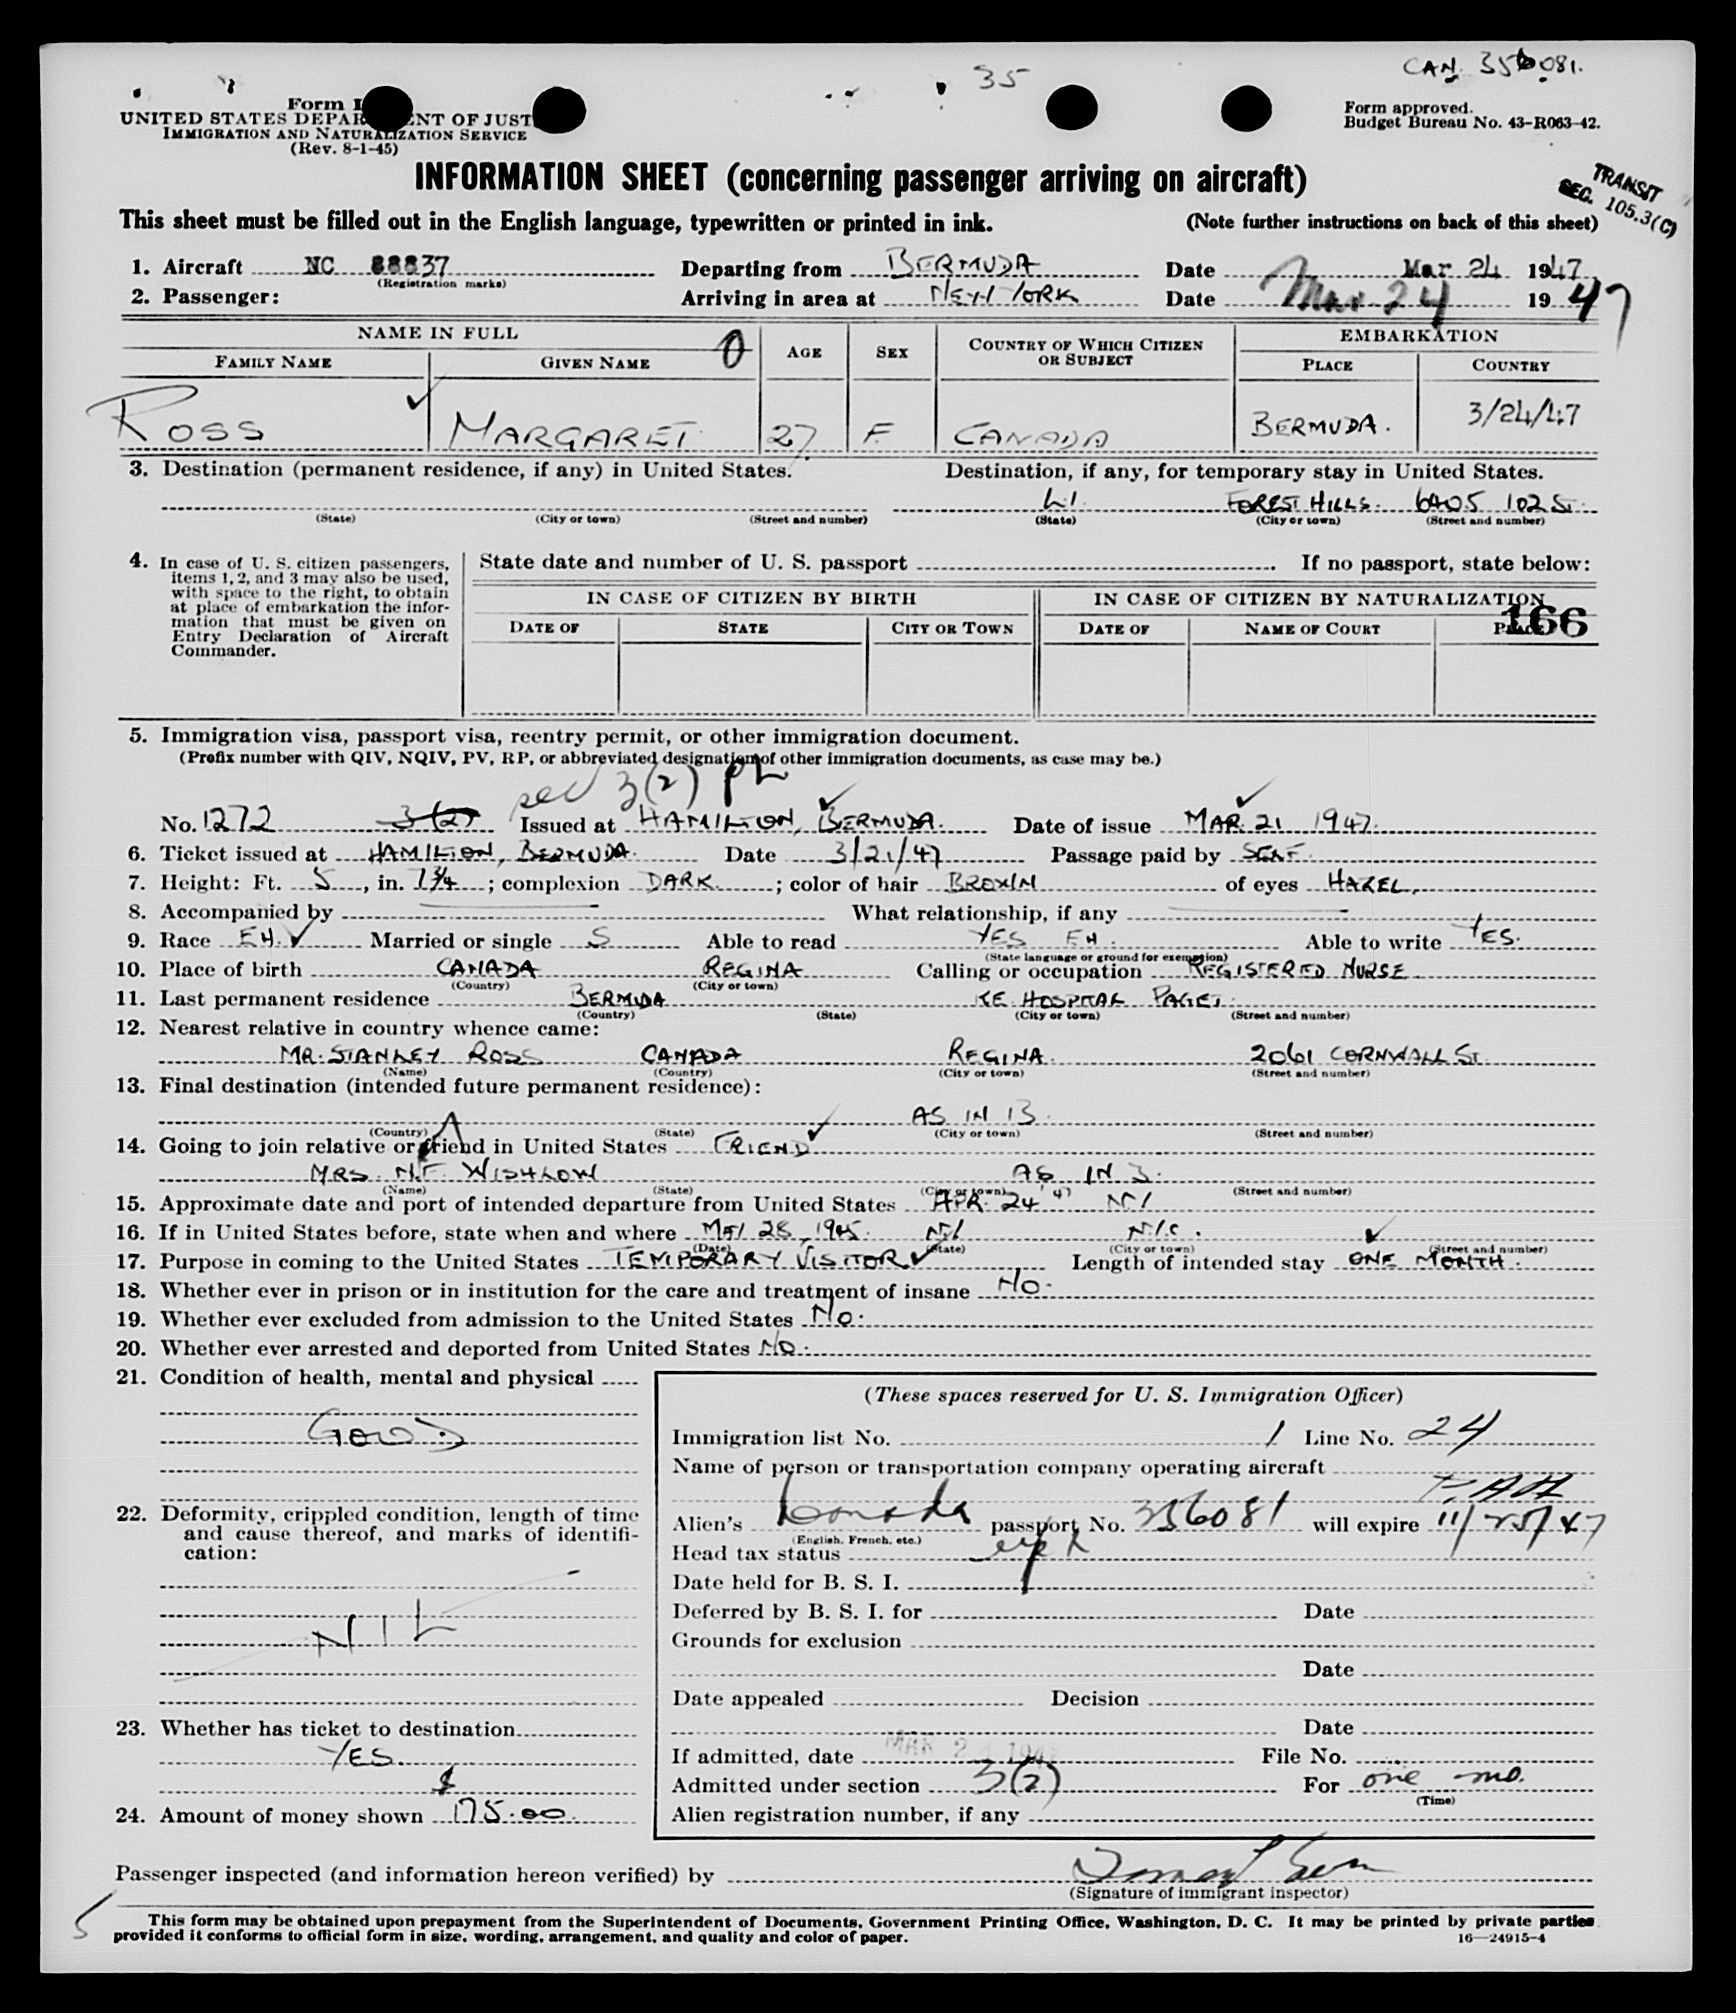 CAN. 356081.
35
Form I
UNITED STATES DEPAR ENT OF JUST
IMMIGRATION AND NATURALIZATION SERVICE
(Rev. 8-1-45)
Form approved.
Budget Bureau No. 43-R063-42.
INFORMATION SHEET (concerning passenger arriving on aircraft)
TRANSIT
SEC. 105.3(C)
This sheet must be filled out in the English language, typewritten or printed in ink. (Note further instructions on back of this sheet)
1. Aircraft NC 88837 Departing from BERMUDA Date Mar 24 1947
(Registration marks)
2. Passenger: Arriving in area at NEW YORK Date Mar 24 1947
NAME IN FULL 0 AGE SEX COUNTRY OF WHICH CITIZEN OR SUBJECT EMBARKATION
FAMILY NAME GIVEN NAME PLACE COUNTRY
ROSS MARGARET 27 F. CANADA BERMUDA. 3/24/47
3. Destination (permanent residence, if any) in United States. Destination, if any, for temporary stay in United States.
L.I. FOREST HILLS. 6405 102 ST.
(State) (City or town) (Street and number) (State) (City or town) (Street and number)
4. In case of U. S. citizen passengers, items 1, 2, and 3 may also be used, with space to the right, to obtain at place of embarkation the information that must be given on Entry Declaration of Aircraft Commander.
State date and number of U. S. passport . If no passport, state below:
IN CASE OF CITIZEN BY BIRTH IN CASE OF CITIZEN BY NATURALIZATION
DATE OF STATE CITY OR TOWN DATE OF NAME OF COURT PLACE
166
5. Immigration visa, passport visa, reentry permit, or other immigration document.
(Prefix number with QIV, NQIV, PV, RP, or abbreviated designation of other immigration documents, as case may be.)
sec 3(2) PL
No. 1272 3(2) Issued at HAMILTON, BERMUDA. Date of issue MAR. 21 1947.
6. Ticket issued at HAMILTON, BERMUDA. Date 3/21/47 Passage paid by SELF.
7. Height: Ft. 5, in. 1 3/4; complexion DARK; color of hair BROWN of eyes HAZEL.
8. Accompanied by What relationship, if any
9. Race EH. Married or single S Able to read YES EH. Able to write YES.
(State language or ground for exemption)
10. Place of birth CANADA REGINA Calling or occupation REGISTERED NURSE
(Country) (City or town)
11. Last permanent residence BERMUDA KE HOSPITAL PAGET.
(Country) (State) (City or town) (Street and number)
12. Nearest relative in country whence came:
MR. STANLEY ROSS CANADA REGINA. 2061 CORNWALL ST.
(Name) (Country) (City or town) (Street and number)
13. Final destination (intended future permanent residence):
AS IN 13.
(Country) (State) (City or town) (Street and number)
14. Going to join relative or friend in United States FRIEND
MRS. N.F. WISHLOW AS IN 3.
(Name) (State) (City or town) (Street and number)
15. Approximate date and port of intended departure from United States APR. 24 '47 NY
16. If in United States before, state when and where MAY 28, 1945. NY N.Y.C.
(Date) (State) (City or town) (Street and number)
17. Purpose in coming to the United States TEMPORARY VISITOR Length of intended stay ONE MONTH.
18. Whether ever in prison or in institution for the care and treatment of insane NO.
19. Whether ever excluded from admission to the United States NO.
20. Whether ever arrested and deported from United States NO.
21. Condition of health, mental and physical
GOOD
22. Deformity, crippled condition, length of time and cause thereof, and marks of identification:
NIL
23. Whether has ticket to destination
YES
24. Amount of money shown $ 175.00
(These spaces reserved for U. S. Immigration Officer)
Immigration list No. 1 Line No. 24
Name of person or transportation company operating aircraft
P.A.A.
Alien's Canada passport No. 356081 will expire 11/25/47
(English, French, etc.)
Head tax status
Date held for B. S. I.
Deferred by B. S. I. for Date
Grounds for exclusion
Date
Date appealed Decision
Date
If admitted, date MAR 24 1947 File No.
Admitted under section 3(2) For one mo.
(Time)
Alien registration number, if any
Passenger inspected (and information hereon verified) by
(Signature of immigrant inspector)
5
This form may be obtained upon prepayment from the Superintendent of Documents, Government Printing Office, Washington, D. C. It may be printed by private parties
provided it conforms to official form in size, wording, arrangement, and quality and color of paper.
16—24915-4